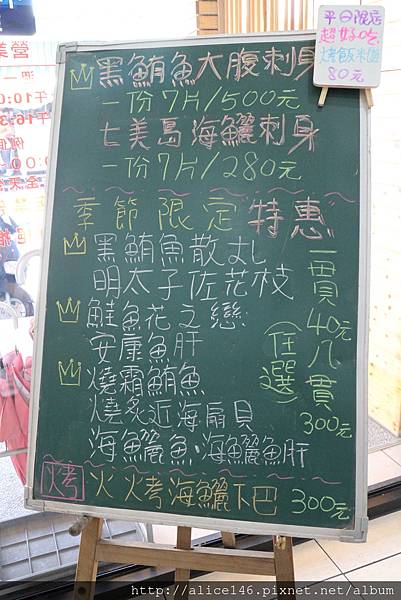 平日限店
超好吃
烤飯米糰
80元
黑鮪魚大腹刺身
一份7片/500元
七美島海鱺刺身
一份7片/280元
季節限定"特惠"
黑鮪魚散壽し
明太子佐花枝
鮭魚花之戀
安康魚肝
燒霜鮪魚
燒炙近海扇貝
海鱺魚、海鱺魚肝
一貫40元八貫300元
(任選)
烤 火火烤海鱺下巴 300元
http://alice146.pixnet.net/album